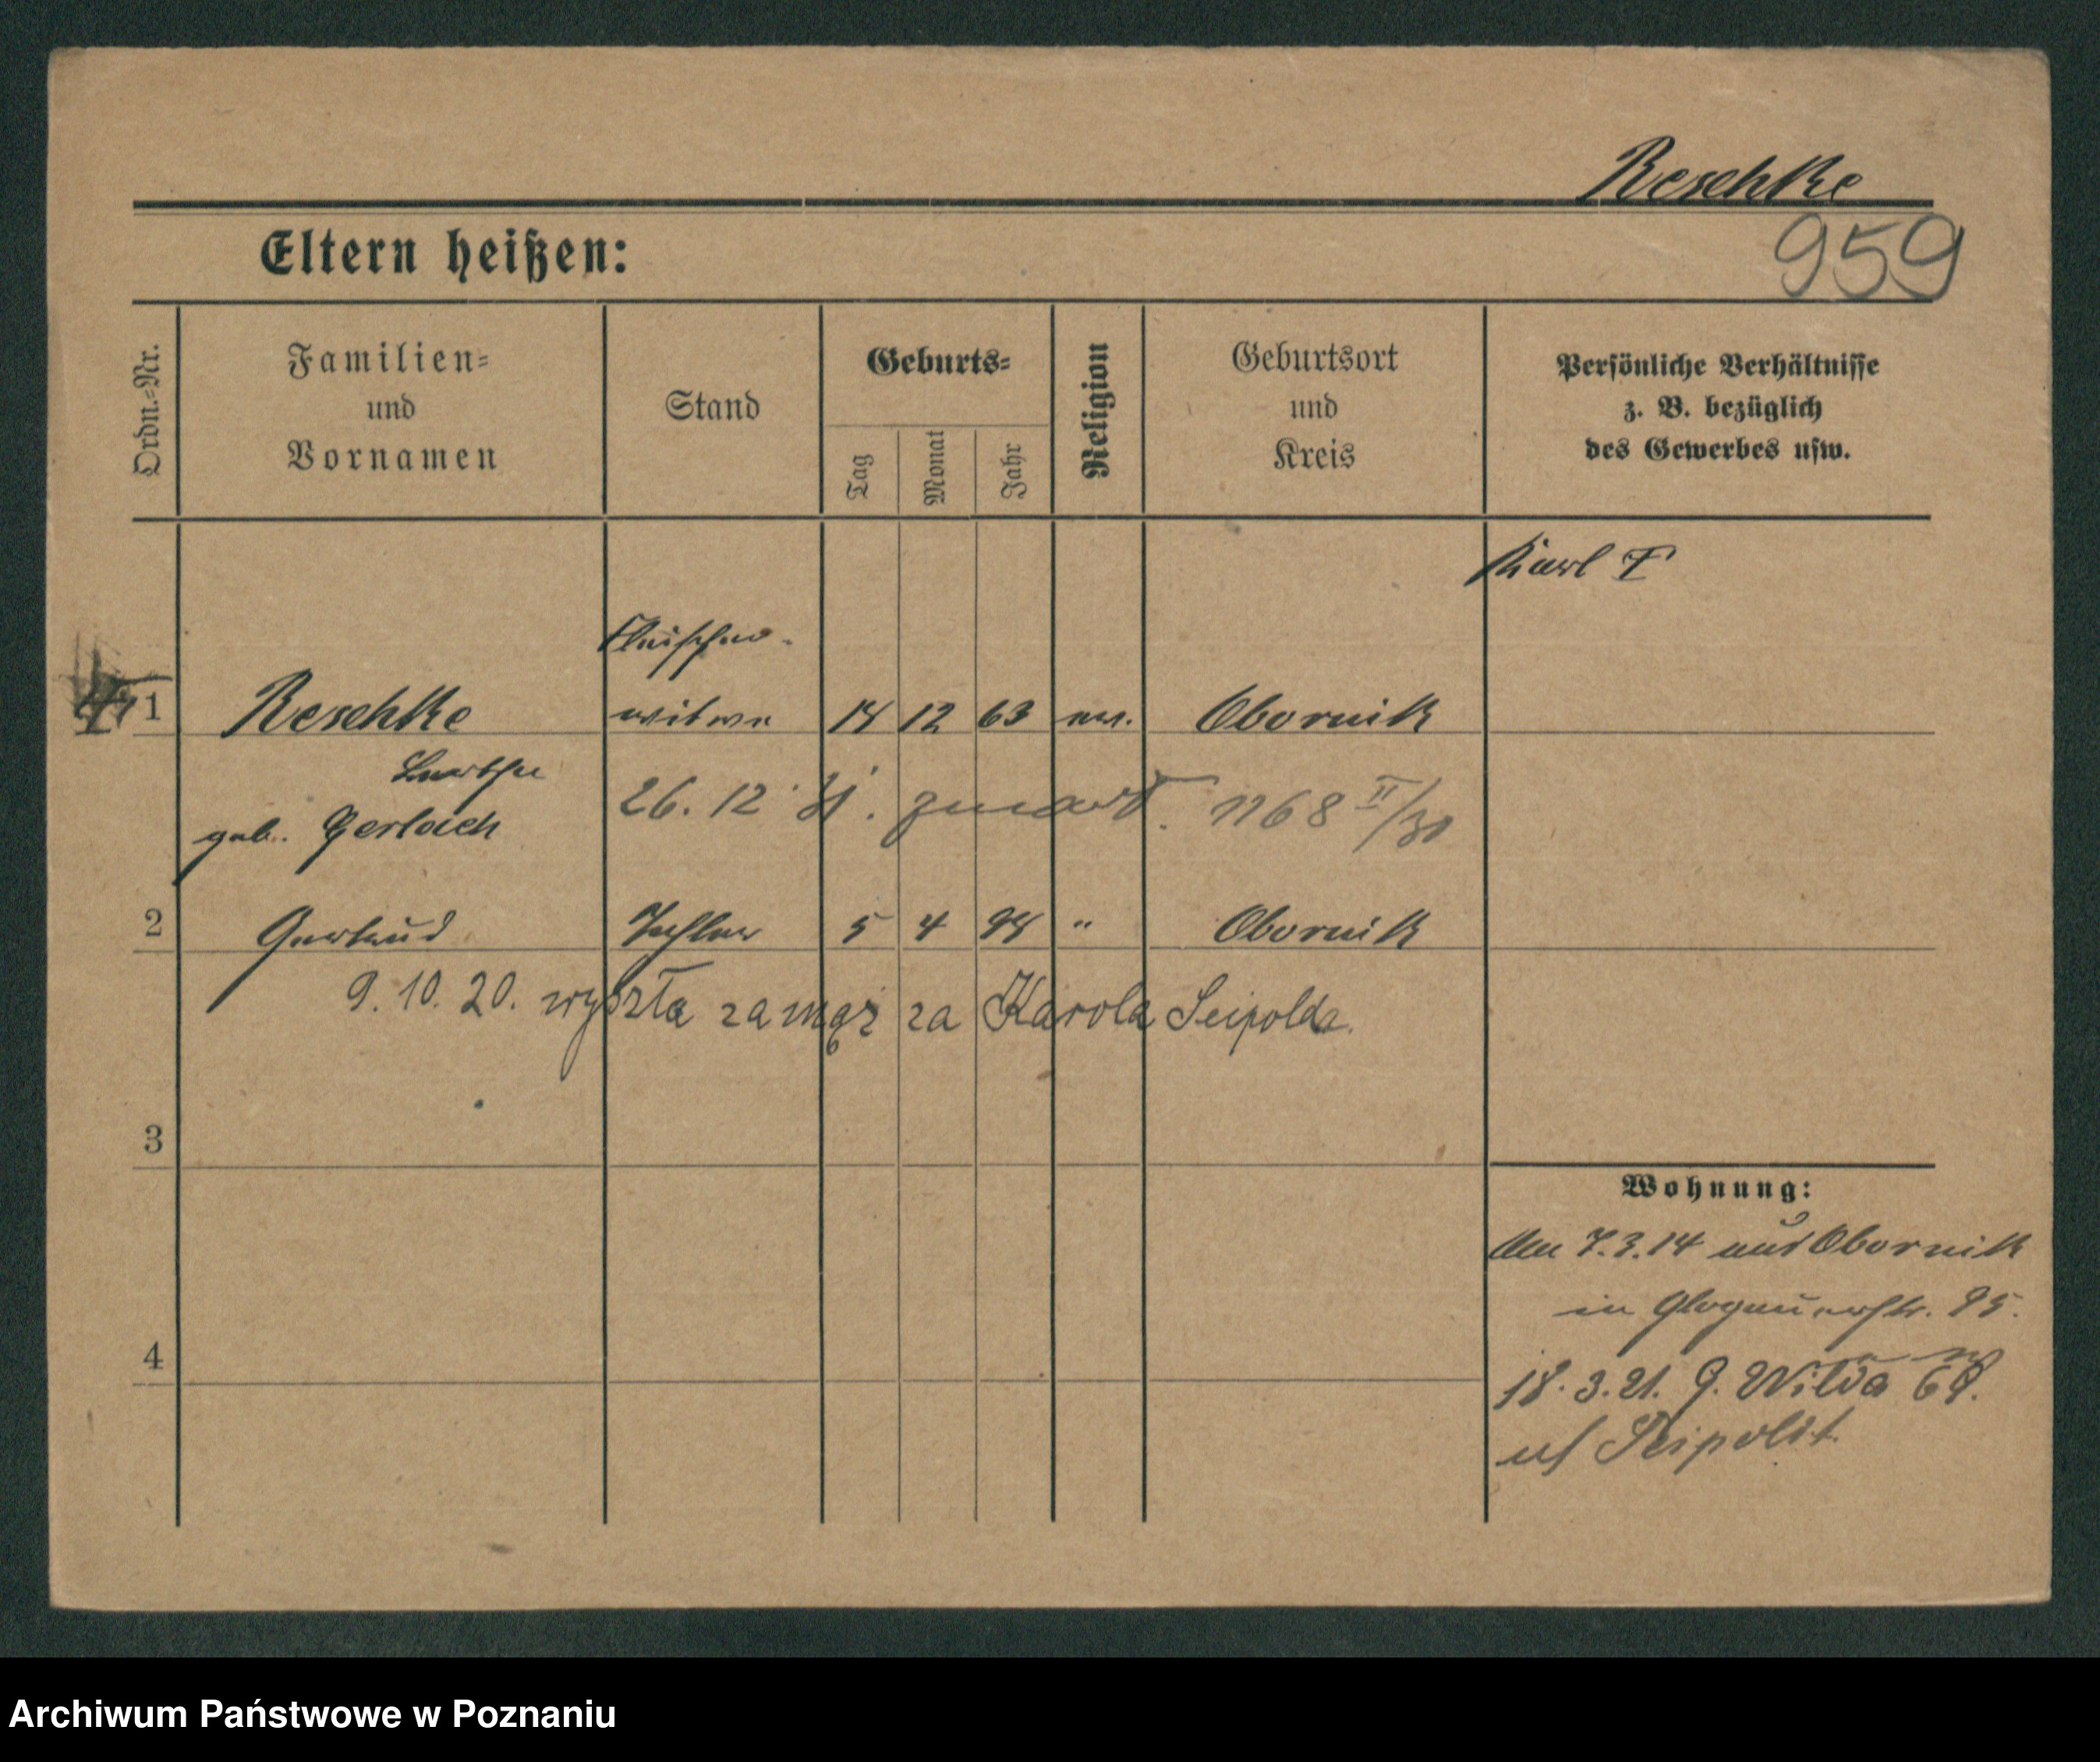 Reschke
959
Eltern heißen:
Ordn.=Nr.
Familien=
und
Vornamen
Stand
Geburts=
Tag
Monat
Jahr
Religion
Geburtsort
und
Kreis
Persönliche Verhältnisse
z. B. bezüglich
des Gewerbes usw.
Karl
Fleischer-
1 Reschke witwe 14 12 63 ev. Obornik
Berthe
geb. Gerlach
26. 12 31. zmarł. 1168 II/31
2 Gertrud Tochter 5 4 94 " Obornik
9. 10. 20. wyszła zamąż za Karola Seipolda.
3
4
Wohnung:
Am 7.3.14 aus Obornik
in Glogauerstr. 95.
18. 3. 21. G. Wilda
Seipoldt
Archiwum Państwowe w Poznaniu